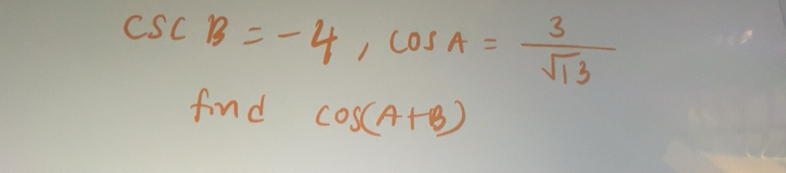 CSC B = -4, COS A = 3/√13
find cos(A+B)